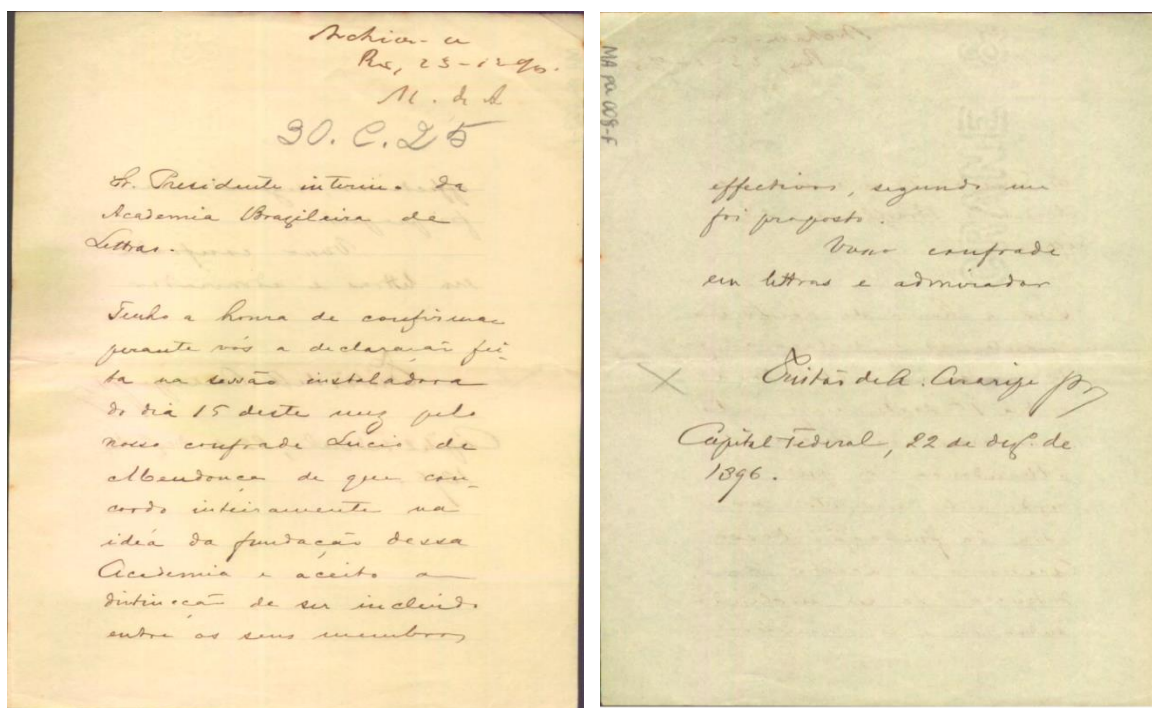 Archive-se
Rio, 23-12-96.
M. de A
30.C.25
Sr. Presidente interino da
Academia Brazileira de
Lettras.
Tenho a honra de confirmar
perante vós a declaração fei-
ta na sessão installadora
do dia 15 deste mez pelo
nosso confrade Lucio de
Mendonça de que con-
cordo inteiramente na
idéa da fundação dessa
Academia e aceito a
distincção de ser incluido
entre os seus membros
MA pu 008-F
effectivos, segundo me
foi proposto.
Vosso confrade
em lettras e admirador
Tristão de A. Araripe Jor
Capital Federal, 22 de dezº. de
1896.